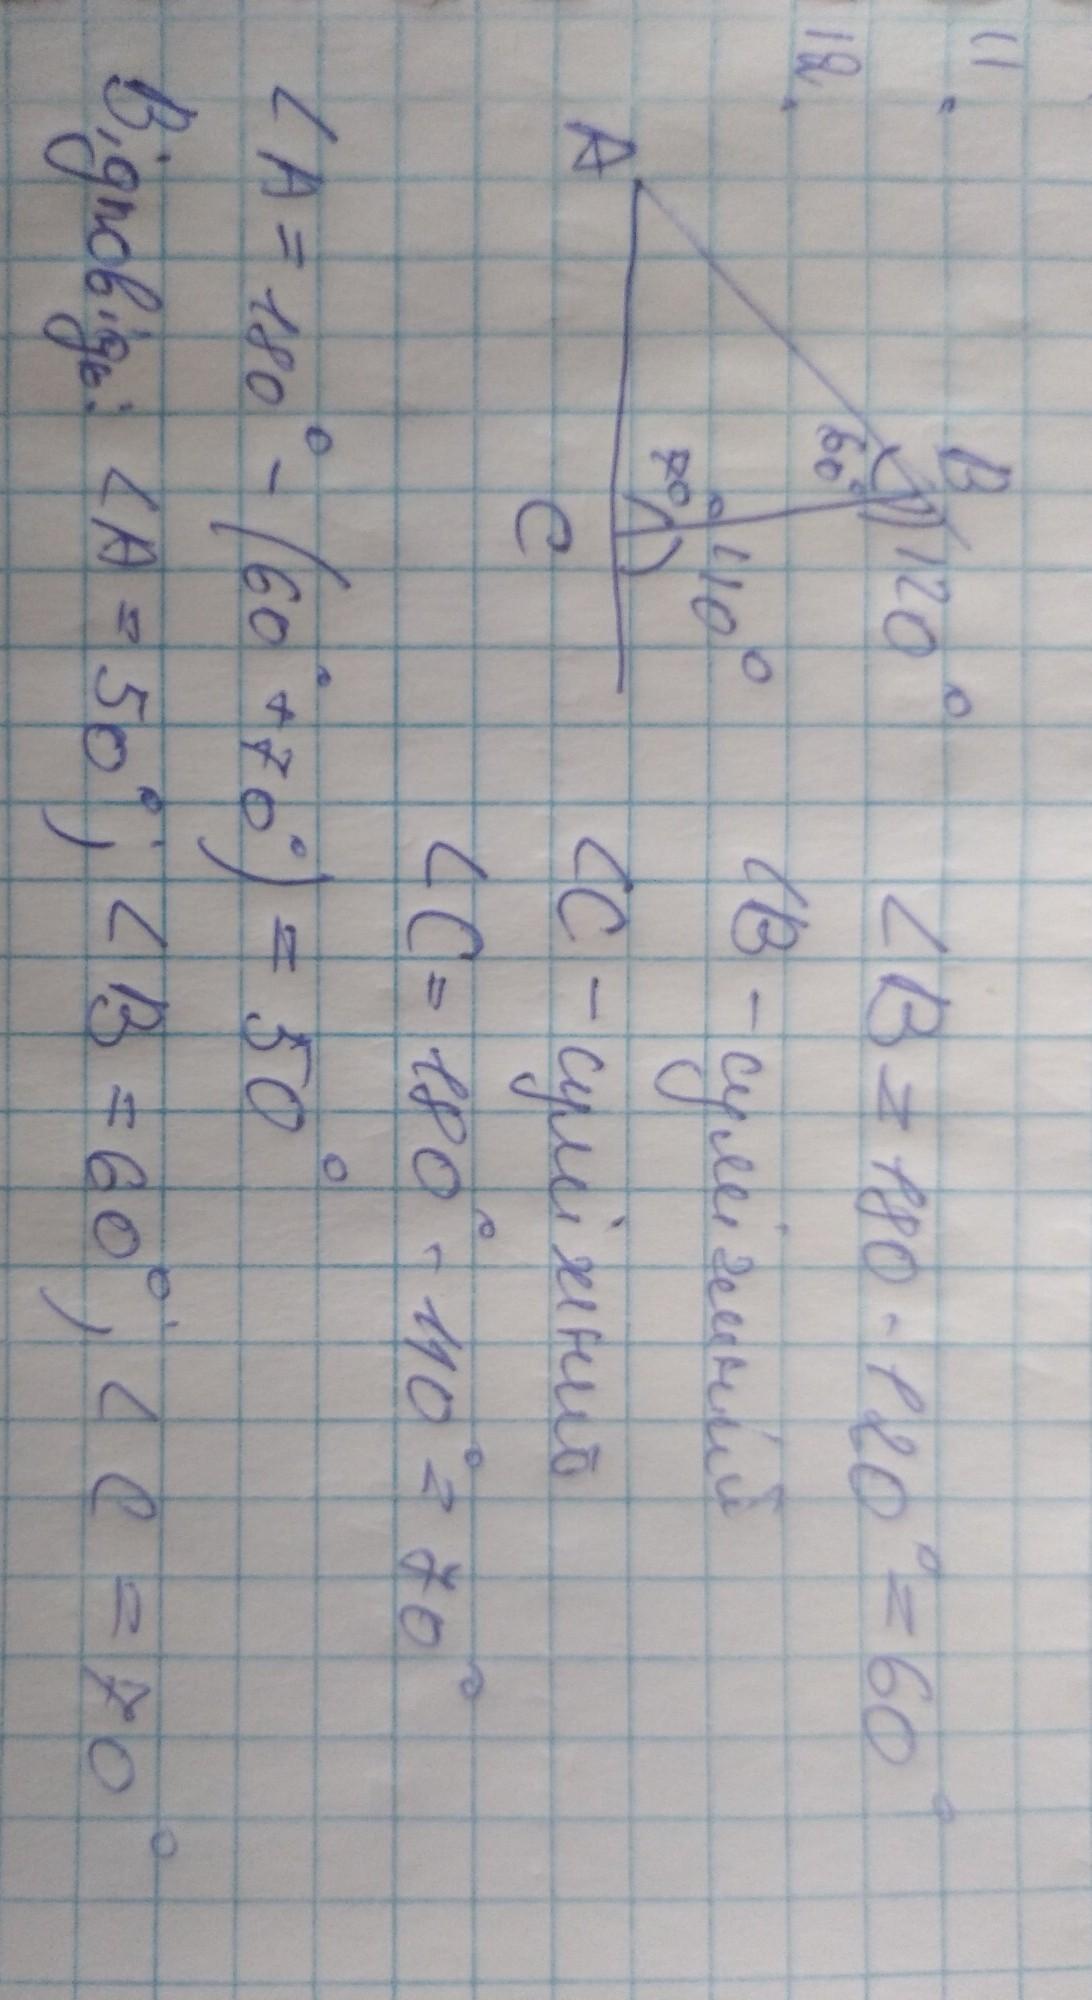 11.
12.
B
120°
60°
70°
110°
A
C
∠B = 180 - 120° = 60°
∠B - суміжний
∠C - суміжний
∠C = 180° - 110° = 70°
∠A = 180° - (60° + 70°) = 50°
Відповідь: ∠A = 50°; ∠B = 60°; ∠C = 70°